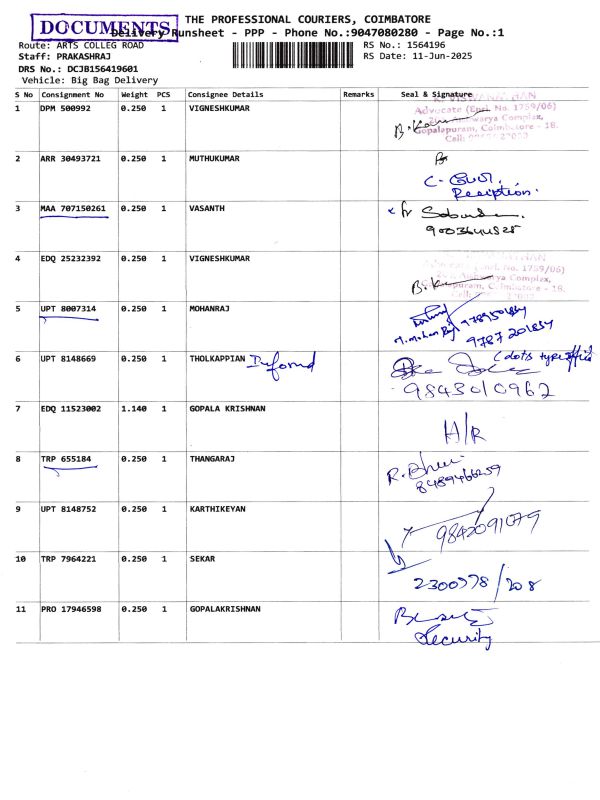 DOCUMENTS
THE PROFESSIONAL COURIERS, COIMBATORE
Delivery Runsheet - PPP - Phone No.:9047080280 - Page No.:1
Route: ARTS COLLEG ROAD
RS No.: 1564196
Staff: PRAKASHRAJ
RS Date: 11-Jun-2025
DRS No.: DCJB156419601
Vehicle: Big Bag Delivery
S No Consignment No Weight PCS Consignee Details Remarks Seal & Signature
1 DPM 500992 0.250 1 VIGNESHKUMAR
Advocate (Enrl. No. 1759/06)
Complex,
Gopalapuram, Coimbatore - 18.
Cell:
2 ARR 30493721 0.250 1 MUTHUKUMAR
Reception.
3 MAA 707150261 0.250 1 VASANTH
4 EDQ 25232392 0.250 1 VIGNESHKUMAR
No. 1759/06)
Complex,
Coimbatore - 18.
5 UPT 8007314 0.250 1 MOHANRAJ
9787201854
6 UPT 8148669 0.250 1 THOLKAPPIAN
9843010962
7 EDQ 11523002 1.140 1 GOPALA KRISHNAN
H/R
8 TRP 655184 0.250 1 THANGARAJ
9 UPT 8148752 0.250 1 KARTHIKEYAN
9842091079
10 TRP 7964221 0.250 1 SEKAR
2300778/208
11 PRO 17946598 0.250 1 GOPALAKRISHNAN
Security